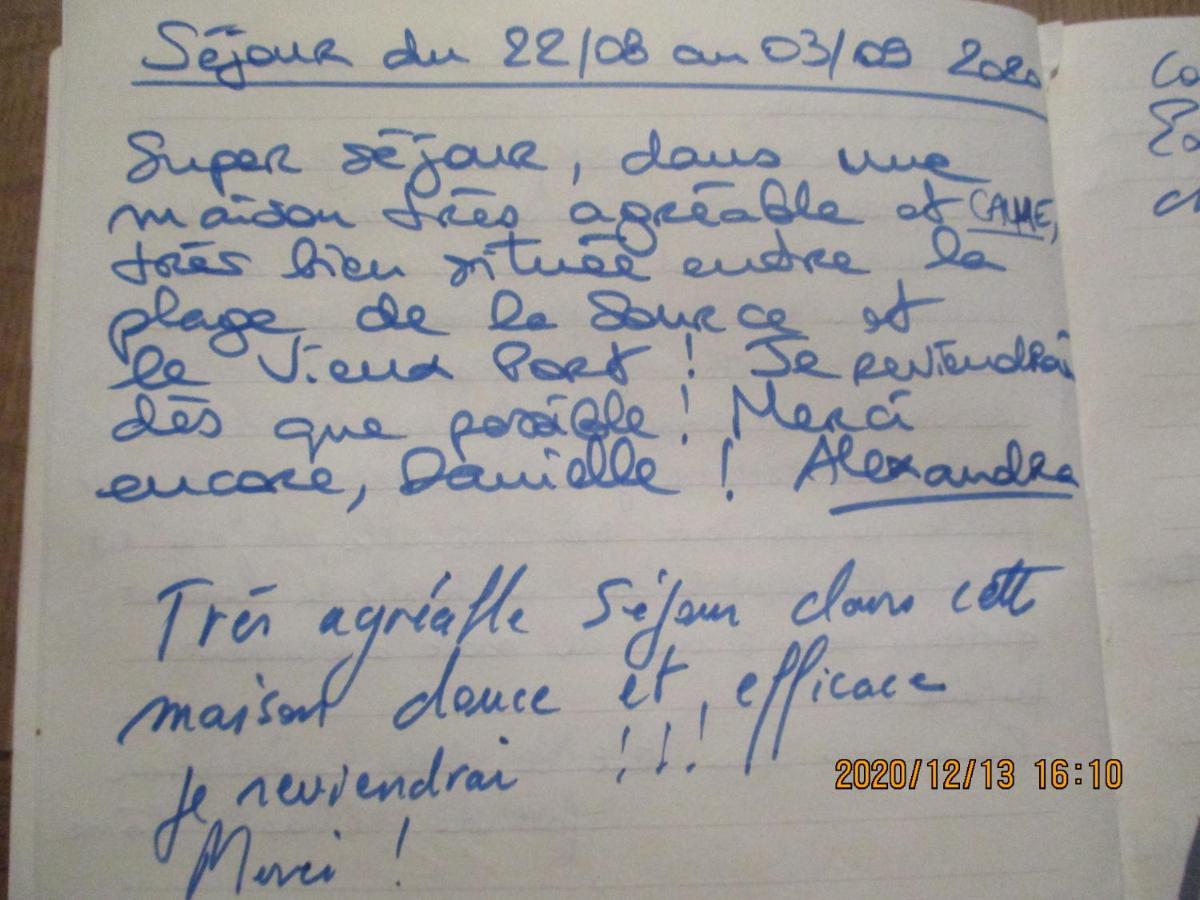 Séjour du 22/08 au 03/09 2020
Super séjour, dans une
maison très agréable et CALME,
très bien située entre la
plage de la Source et
le Vieux Port ! Je reviendrai
dès que possible ! Merci
encore, Danielle ! Alexandra
Très agréable Séjour dans cette
maison douce et efficace
je reviendrai !!!
Merci !
2020/12/13 16:10